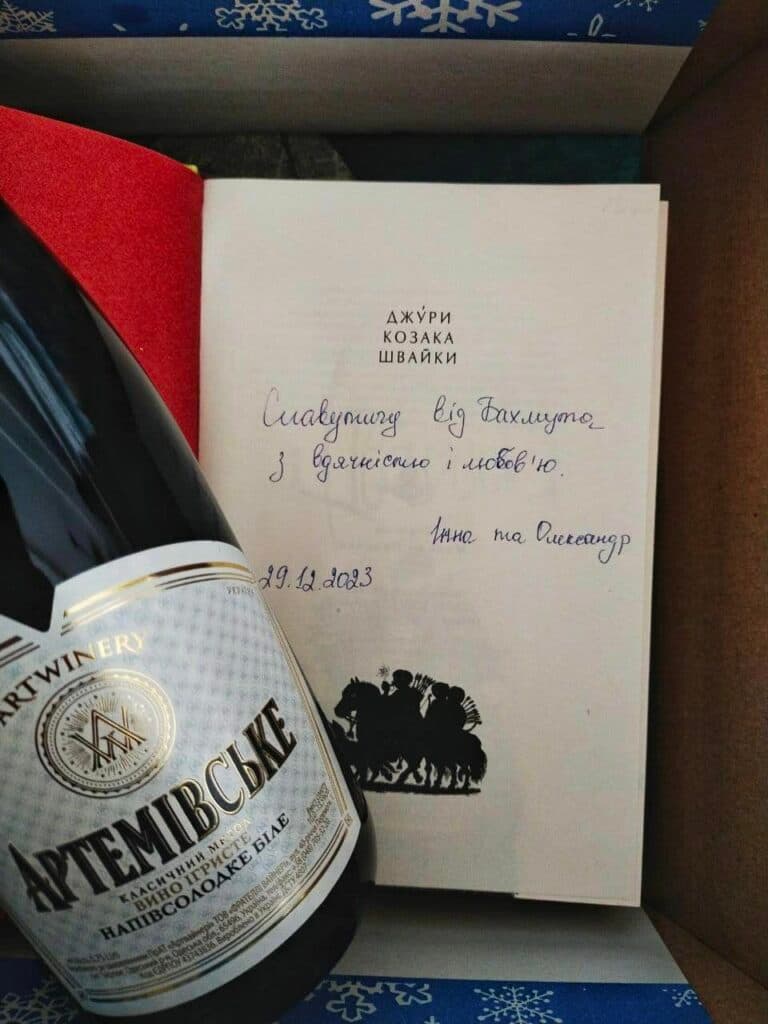 ДЖУРИ
КОЗАКА
ШВАЙКИ
Славутичу від Бахмута
з вдячністю і любов'ю.
Інна та Олександр
29.12.2023
УКРАЇНА
ARTWINERY
АРТЕМІВСЬКЕ
КЛАСИЧНИЙ МЕТОД
ВИНО ІГРИСТЕ
НАПІВСОЛОДКЕ БІЛЕ